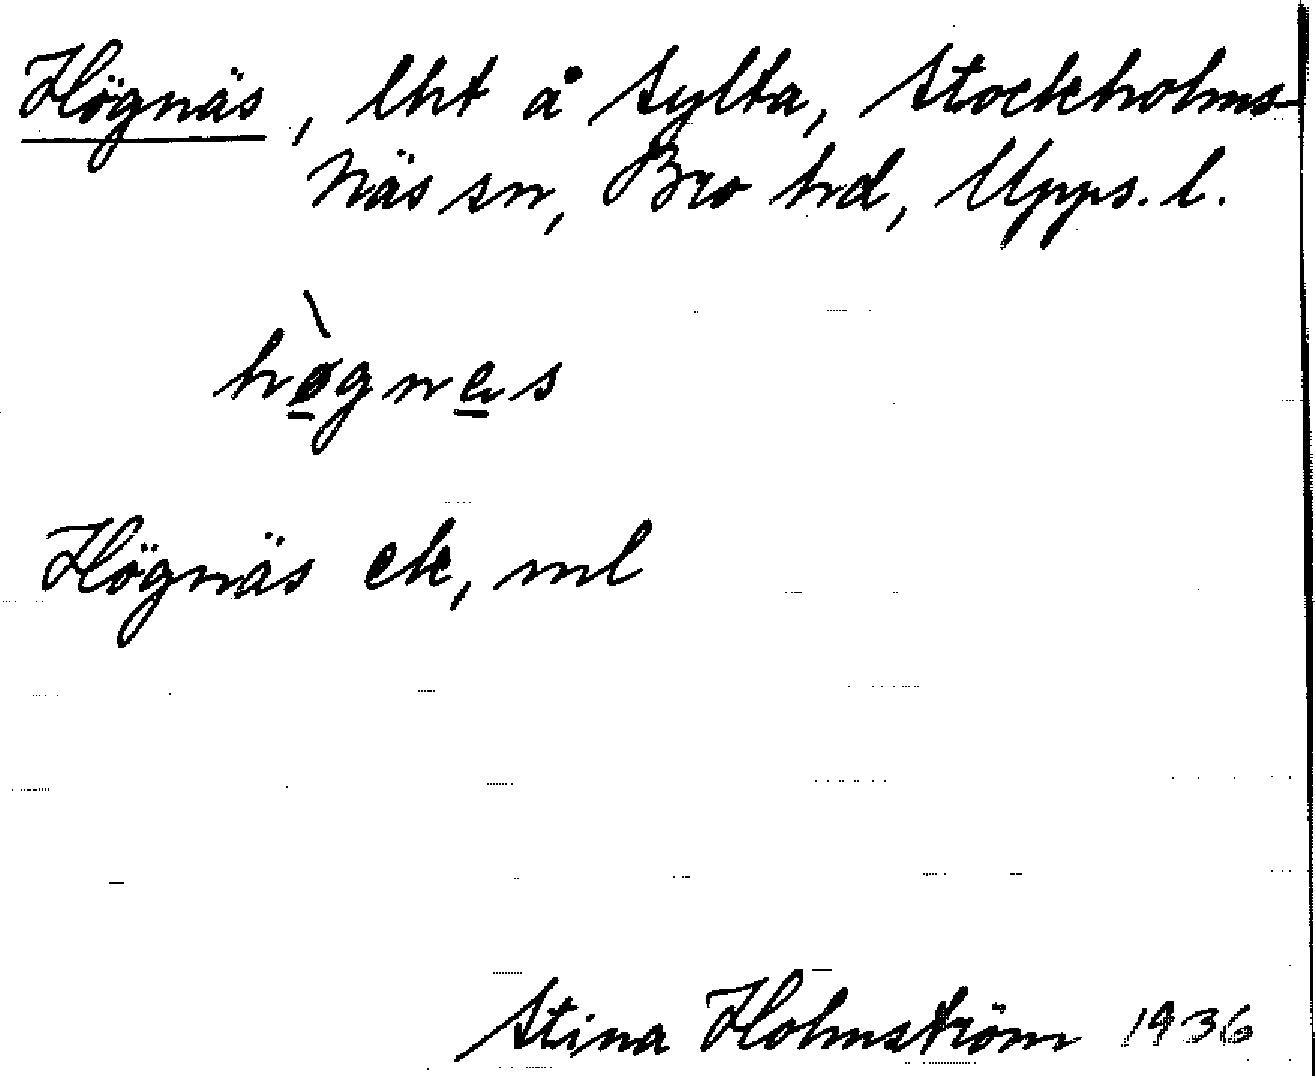 Högnäs, lht å Sylta, Stockholms-
Näs sn, Bro hd, Upps. l.
hø̀gnes
Högnäs ek, ml
Stina Holmström 1936